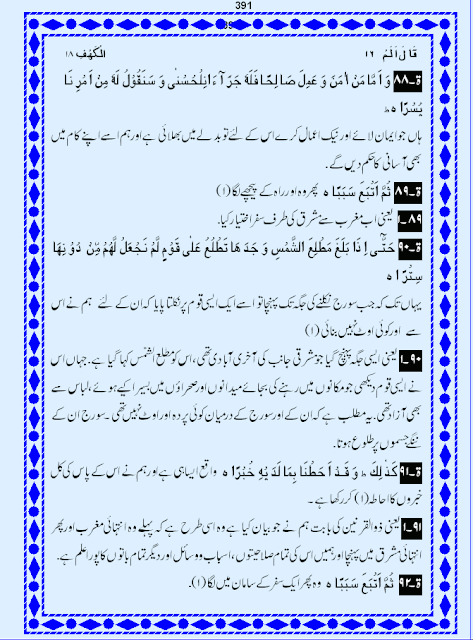 391
قَالَ اَلَمْ ١٦ الْكَهْف ١٨
ۃ۔۸۸ وَ اَمَّا مَنْ اٰمَنَ وَ عَمِلَ صَالِحًا فَلَهٗ جَزَآءَ اۨلْحُسْنٰى وَ سَنَقُوْلُ لَهٗ مِنْ اَمْرِنَا
يُسْرًا ہ ط
ہاں جو ایمان لائے اور نیک اعمال کرے اس کے لئے تو بدلے میں بھلائی ہے اور ہم اسے اپنے کام میں
بھی آسانی کا حکم دیں گے۔
ۃ۔۸۹ ثُمَّ اَتْبَعَ سَبَبًا ہ پھر وہ اور راہ کے پیچھے لگا (۱)
۸۹۔۱ یعنی اب مغرب سے مشرق کی طرف سفر اختیار کیا۔
ۃ۔۹۰ حَتّٰٓى اِذَا بَلَغَ مَطْلِعَ الشَّمْسِ وَجَدَهَا تَطْلُعُ عَلٰى قَوْمٍ لَّمْ نَجْعَلْ لَّهُمْ مِّنْ دُوْنِهَا
سِتْرًا ہ
یہاں تک کہ جب سورج نکلنے کی جگہ تک پہنچا تو اسے ایک ایسی قوم پر نکلتا پایا کہ ان کے لئے ہم نے اس
سے اور کوئی اوٹ نہیں بنائی (۱)
۹۰۔۱ یعنی ایسی جگہ پہنچ گیا جو مشرقی جانب کی آخری آبادی تھی، اس کو مطلع الشمس کہا گیا ہے۔ جہاں اس
نے ایسی قوم دیکھی جو مکانوں میں رہنے کی بجائے میدانوں اور صحراؤں میں بسیرا کیے ہوئے، لباس سے
بھی آزاد تھی۔ یہ مطلب ہے کہ ان کے اور سورج کے درمیان کوئی پردہ اور اوٹ نہیں تھی۔ سورج ان کے
ننگے جسموں پر طلوع ہوتا۔
ۃ۔۹۱ كَذٰلِكَ ط وَ قَدْ اَحَطْنَا بِمَا لَدَيْهِ خُبْرًا ہ واقع ایسا ہی ہے اور ہم نے اس کے پاس کی کل
خبروں کا احاطہ (۱) کر رکھا ہے۔
۹۱۔۱ یعنی ذوالقرنین کی بابت ہم نے جو بیان کیا ہے وہ اسی طرح ہے کہ پہلے وہ انتہائی مغرب اور پھر
انتہائی مشرق میں پہنچا اور ہمیں اس کی تمام صلاحیتوں، اسباب و وسائل اور دیگر تمام باتوں کا پورا علم ہے۔
ۃ۔۹۲ ثُمَّ اَتْبَعَ سَبَبًا ہ وہ پھر ایک سفر کے سامان میں لگا (۱)۔